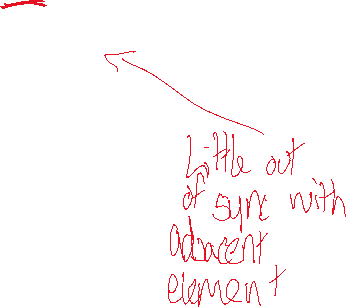 Little out
of sync with
adjacent
element